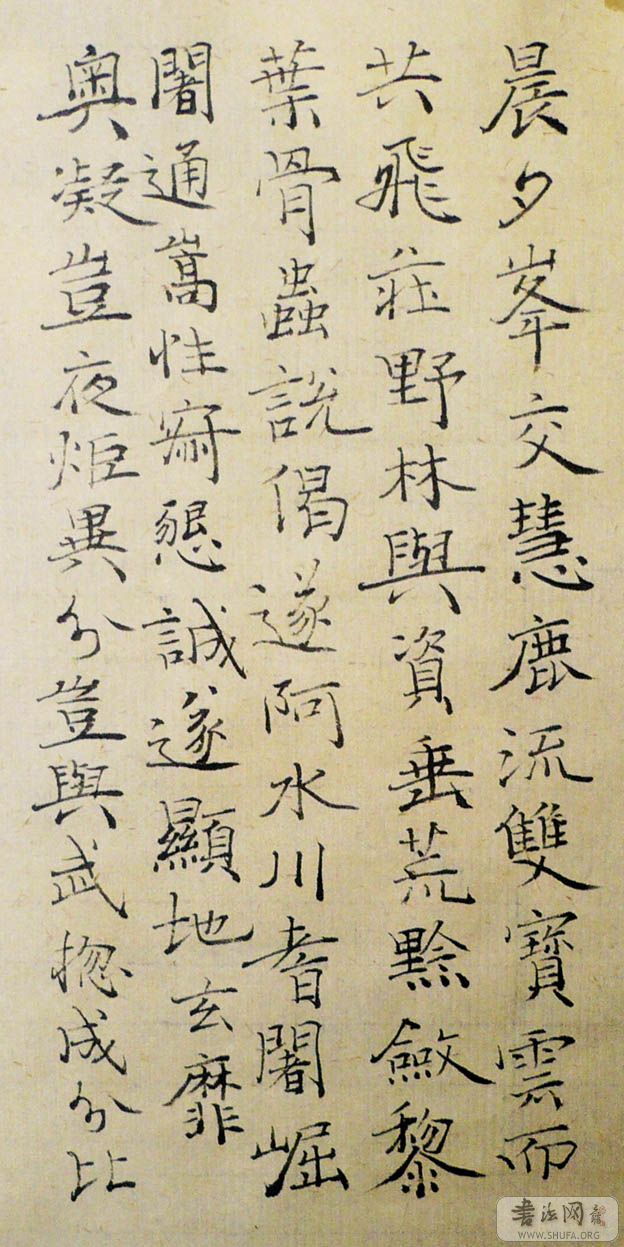 晨夕峯交慧鹿流雙寶雲而
共飛莊野林與資垂荒黔斂黎
葉骨蟲說偈遂阿水川耆闍崛
闍通嵩性窮懇誠遂顯地玄靡
奧凝豈夜炬異分豈與武揔成分比
書法网
WWW.SHUFA.ORG